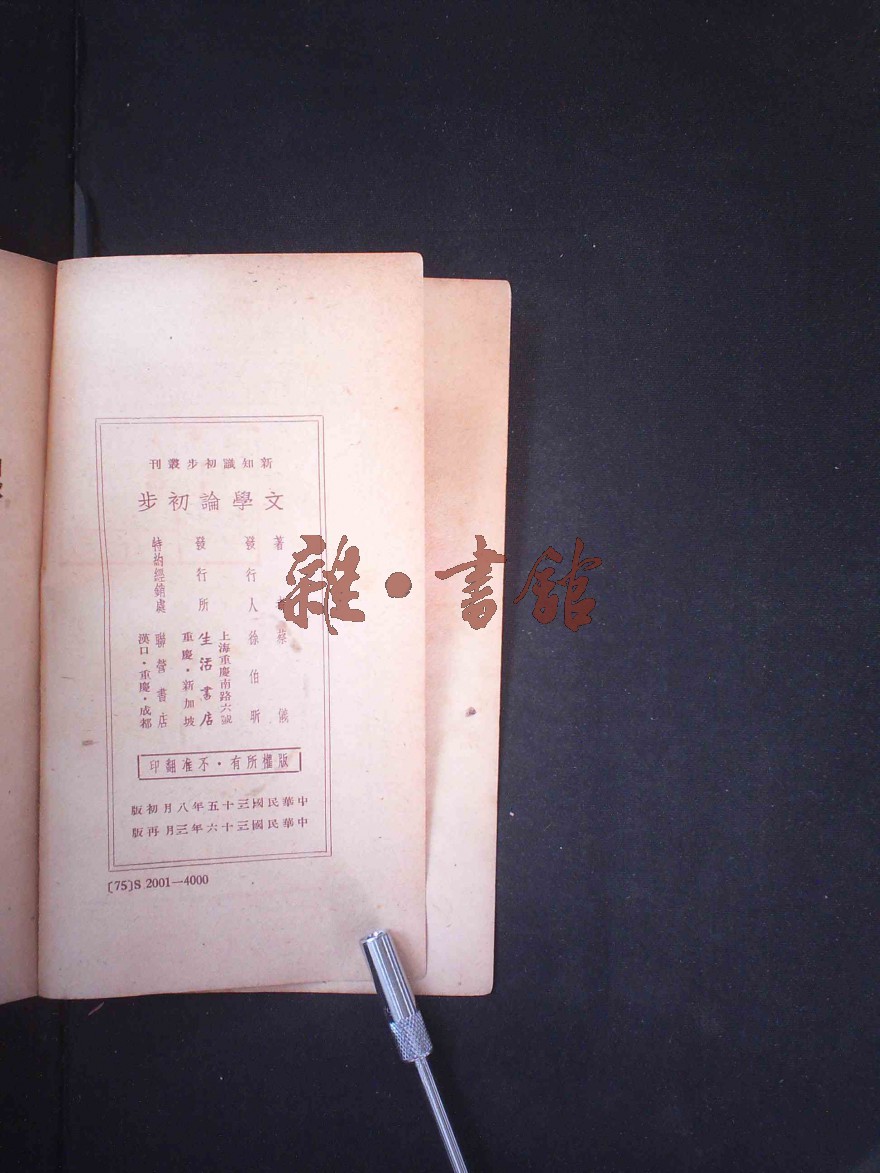 新知識初步叢刊
文學論初步
著 蔡儀
發行人 徐伯昕
發行所 上海重慶南路六號
生活書店
重慶·新加坡
特約經銷處 聯營書店
漢口·重慶·成都
版權所有·不准翻印
中華民國三十五年八月初版
中華民國三十六年三月再版
〔75〕S 2001—4000
雜·書館